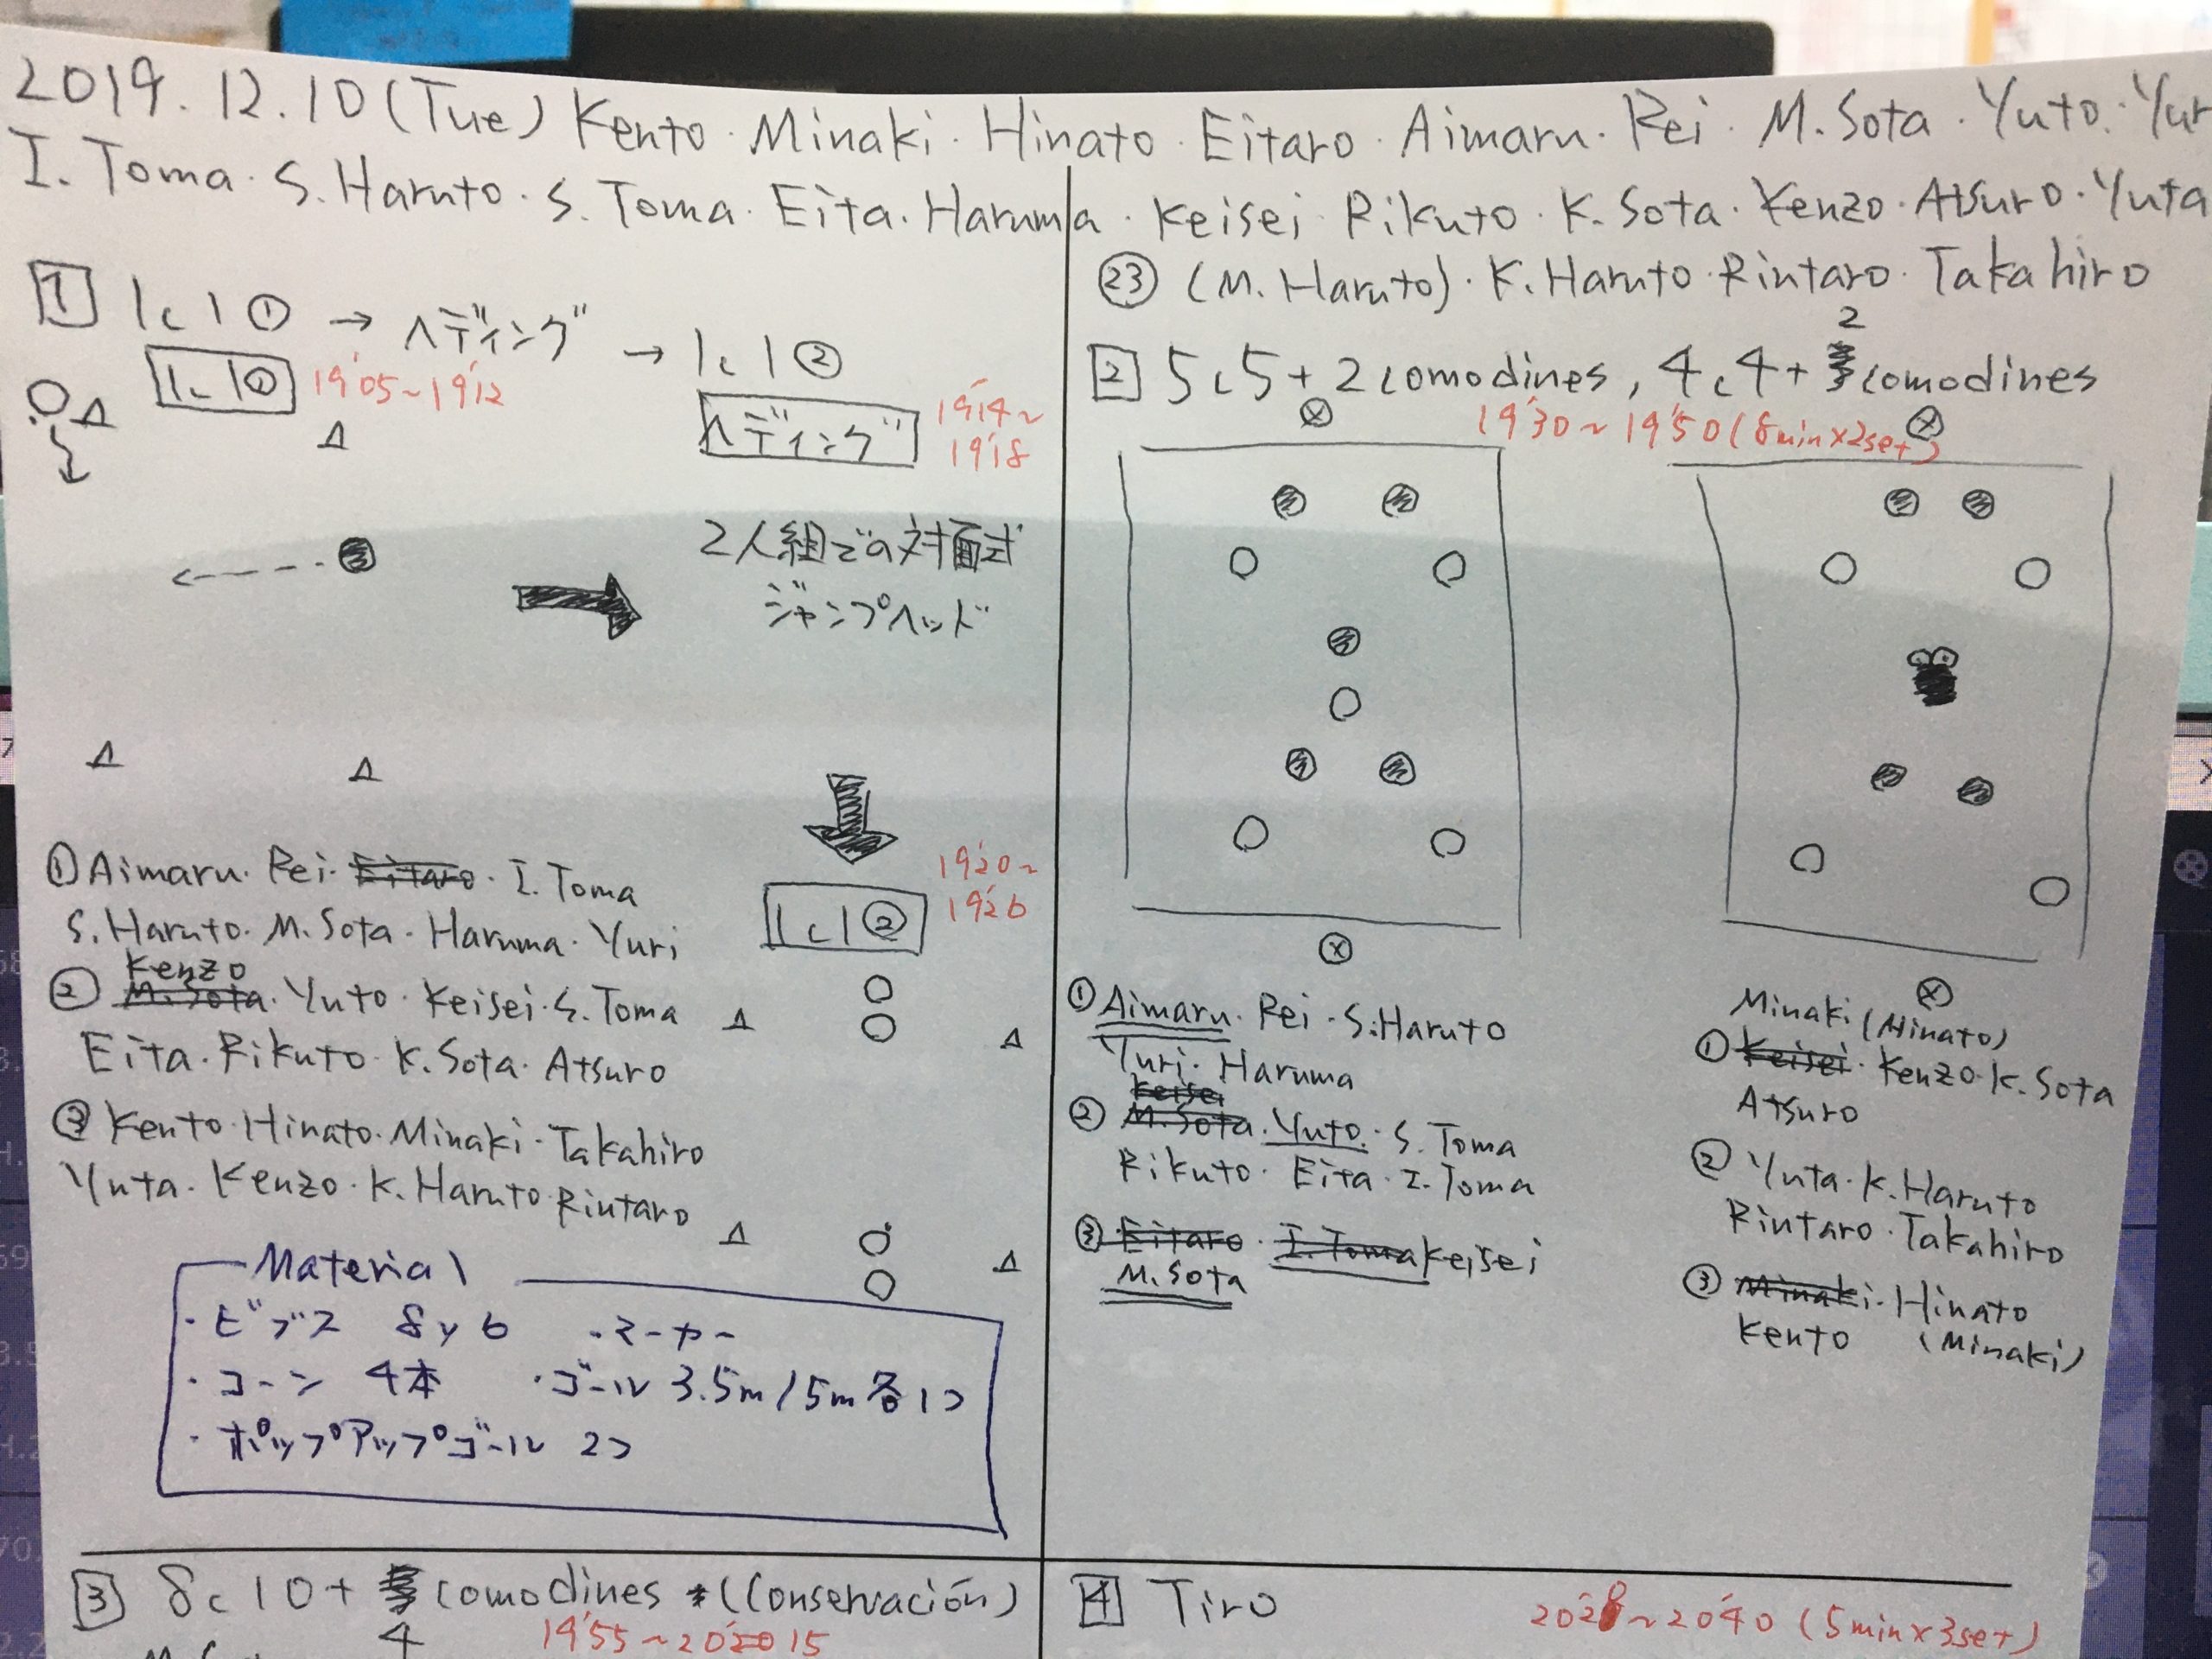 2019.12.10(Tue) Kento・Minaki・Hinato・Eitaro・Aimaru・Rei・M.Sota・Yuto・Yur
I.Toma・S.Haruto・S.Toma・Eita・Haruma・Keisei・Rikuto・K.Sota・Kenzo・Atsuro・Yuta
㉓ (M.Haruto)・K.Haruto・Rintaro・Takahiro
1 1c1① → ヘディング → 1c1②
1c1① 19'05~19'12
ヘディング 19'14~
19'18
2人組での対面式
ジャンプヘッド
19'20~
19'26
1c1②
①Aimaru・Rei・Eitaro・I.Toma
S.Haruto・M.Sota・Haruma・Yuri
Kenzo
② M.Sota・Yuto・Keisei・S.Toma
Eita・Rikuto・K.Sota・Atsuro
③ Kento・Hinato・Minaki・Takahiro
Yuta・Kenzo・K.Haruto・Rintaro
Material
・ビブス 8y6 ・マーカー
・コーン 4本 ・ゴール 3.5m/5m各1コ
・ポップアップゴール 2コ
2
2 5c5+2comodines, 4c4+comodines
19'30~19'50(8min×2set)
①Aimaru・Rei・S.Haruto
Yuri・Haruma
Keisei
② M.Sota・Yuto・S.Toma
Rikuto・Eita・I.Toma
③ Eitaro・I.Toma Keisei
M.Sota
Minaki (Minato)
① Keisei・Kenzo・K.Sota
Atsuro
② Yuta・K.Haruto
Rintaro・Takahiro
③ Minaki・Hinato
Kento (Minaki)
3 8c10+comodines *(Conservación)
4 19'55~20'15
4 Tiro
20'28~20'40 (5min×3set)